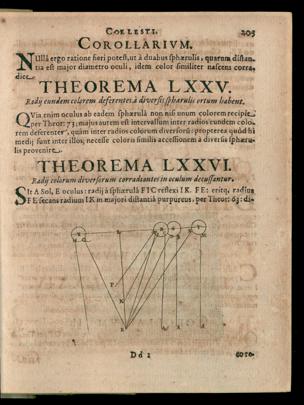 COELESTI. 205
COROLLARIVM.
NUllâ ergo ratione fieri potest, ut à duabus sphærulis, quarum distan-
tia est major diametro oculi, idem color similiter nascens corra-
diet.
THEOREMA LXXV.
Radij eundem colorem deferentes à diversis sphærulis ortum habent.
QVia enim oculus ab eadem sphærulâ non nisi unum colorem recipit
per Theor: 73; majus autem est intervallum inter radios eundem colo-
rem deferentes, quàm inter radios colorum diversorū: propterea quòd hi
medij sunt inter illos; necesse coloris similis accessionem à diversis sphæru-
lis provenire.
THEOREMA LXXVI.
Radij colorum diversorum corradiantes in oculum decussantur.
SIt A Sol, E oculus: radij à sphærulâ FIG reflexi IK. FE: eritq; radius
FE secans radium IK in majori distantiâ purpureus, per Theor: 63: di-
Dd 2